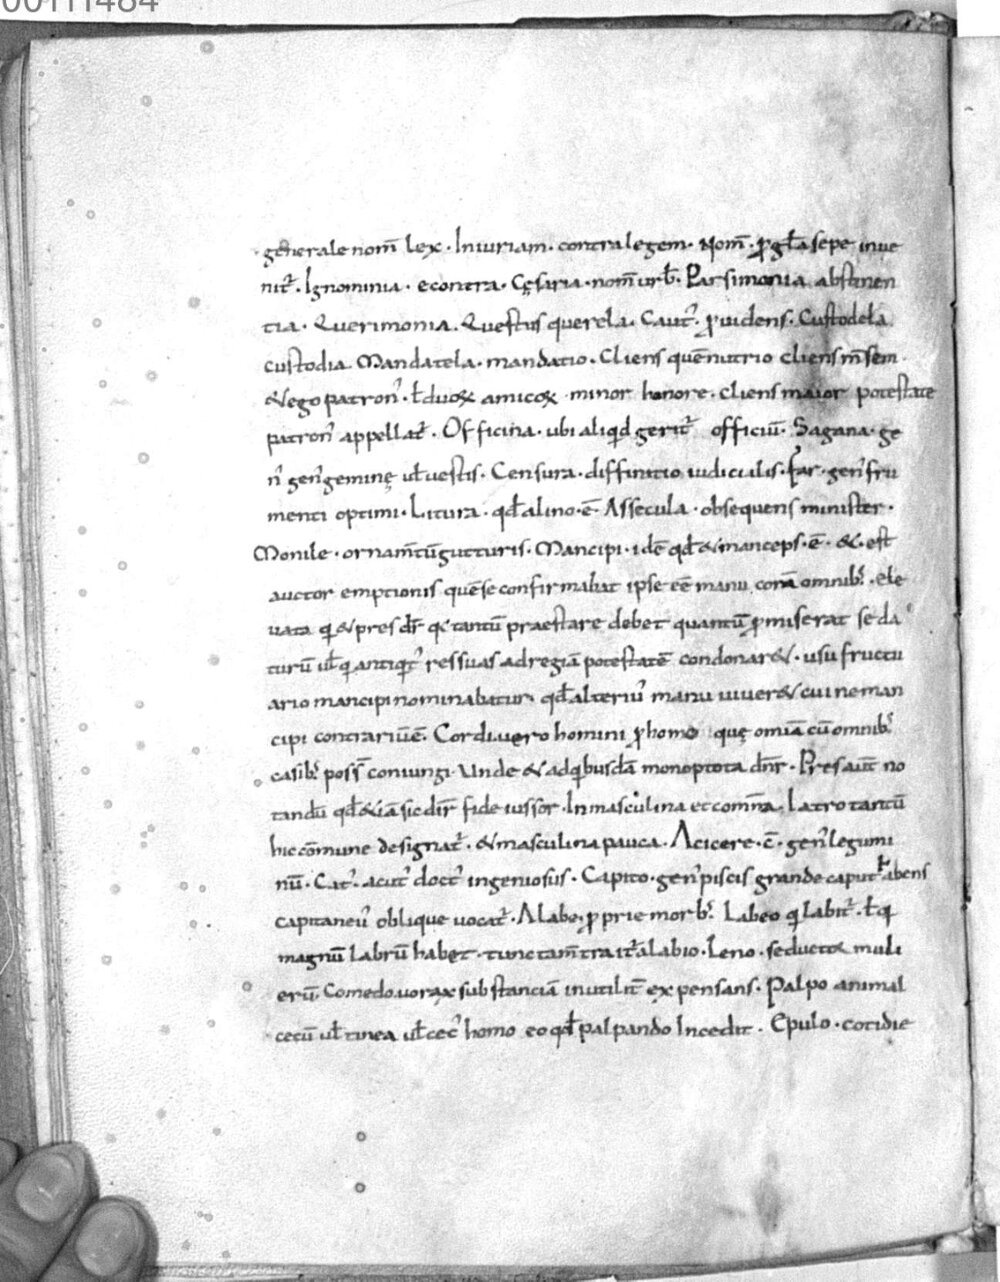 00111484
generale nom̄ lex · Iniuriam · contra legem · Nom̄ · ꝓ gł̄a sepe inue
nit̄ · Ignominia · econtra · Cęsaria · nom̄ urƀ · Parsimonia abstinen
tia · Querimonia · Questus querela · Caut᷒ · ꝓuidens · Custodela
custodia Mandatela · mandatio · Cliens quē nutrio cliens m̄ sem
& ego patron᷒ · ł duoꝝ amicoꝝ · minor honore · cliens maior potestate
patron᷒ appellat̄ · Officina · ubi aliqd gerit̄ officiū · Sagana · ge
n᷒ gen᷒ geminę uł uestis · Censura · diffinitio iudicialis · far · gen᷒ fru
menti optimi · Litura · qđ a lino · ē · Assecula · obsequens minister ·
Monile · ornam̄tū gutturis · Mancipi · idē qđ & manceps · ē · & · est
auctor emptionis quē se confirmabat ipse eē manu corā omnib᷒ · ele
uata q & pres dr̄ q tantū praestare debet quantū ꝓmiserat se da
turū uł q antiqt᷒ res suas ad regiā potestatē condonar& · usu fructu
ario mancipi nominabatur qđ alteri᷒ manu uiuer& cui ne man
cipi contrariū ē · Cordi uero homini ꝓ homo quę om̄ia cū omnib᷒
casib᷒ poss̄ coniungi · Unde & a dqbusdā monoptota dn̄r · Pres aut̄ no
tandū qđ &iā sic dir̄ fide iussor · In masculina et com̄na · Latro tantū
hic cōmune designat̄ · & masculina pauca · Λ cicere · ē · gen᷒ legumi
nū · Cat᷒ · acut᷒ doct᷒ ingeniosus · Capito · gen᷒ piscis grande caput habens
capitaneū oblique uocat̄ · A labe · ꝓprie morb᷒ Labeo q labit̄ · ł q
magnū labrū habet · tunc tam̄ trahit̄ a labio · Leno · seductor muli
erū · Comedo · uorax substanciā inutilit̄ expensans · Palpo animal
cecū uł tinea uł cec᷒ homo eo qđ palpando Incedit · Epulo · cotidie